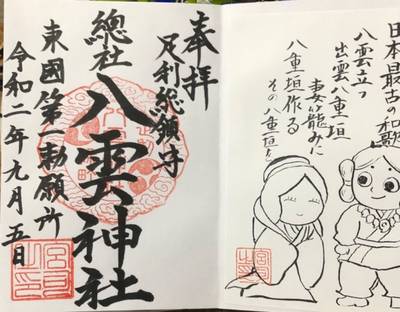 日本最古の和歌
八雲立つ
出雲八重垣
妻籠みに
八重垣作る
その八重垣を
奉拝
足利総鎮守
總社
八雲神社
東國第一勅願所
令和二年九月五日
宮司之印